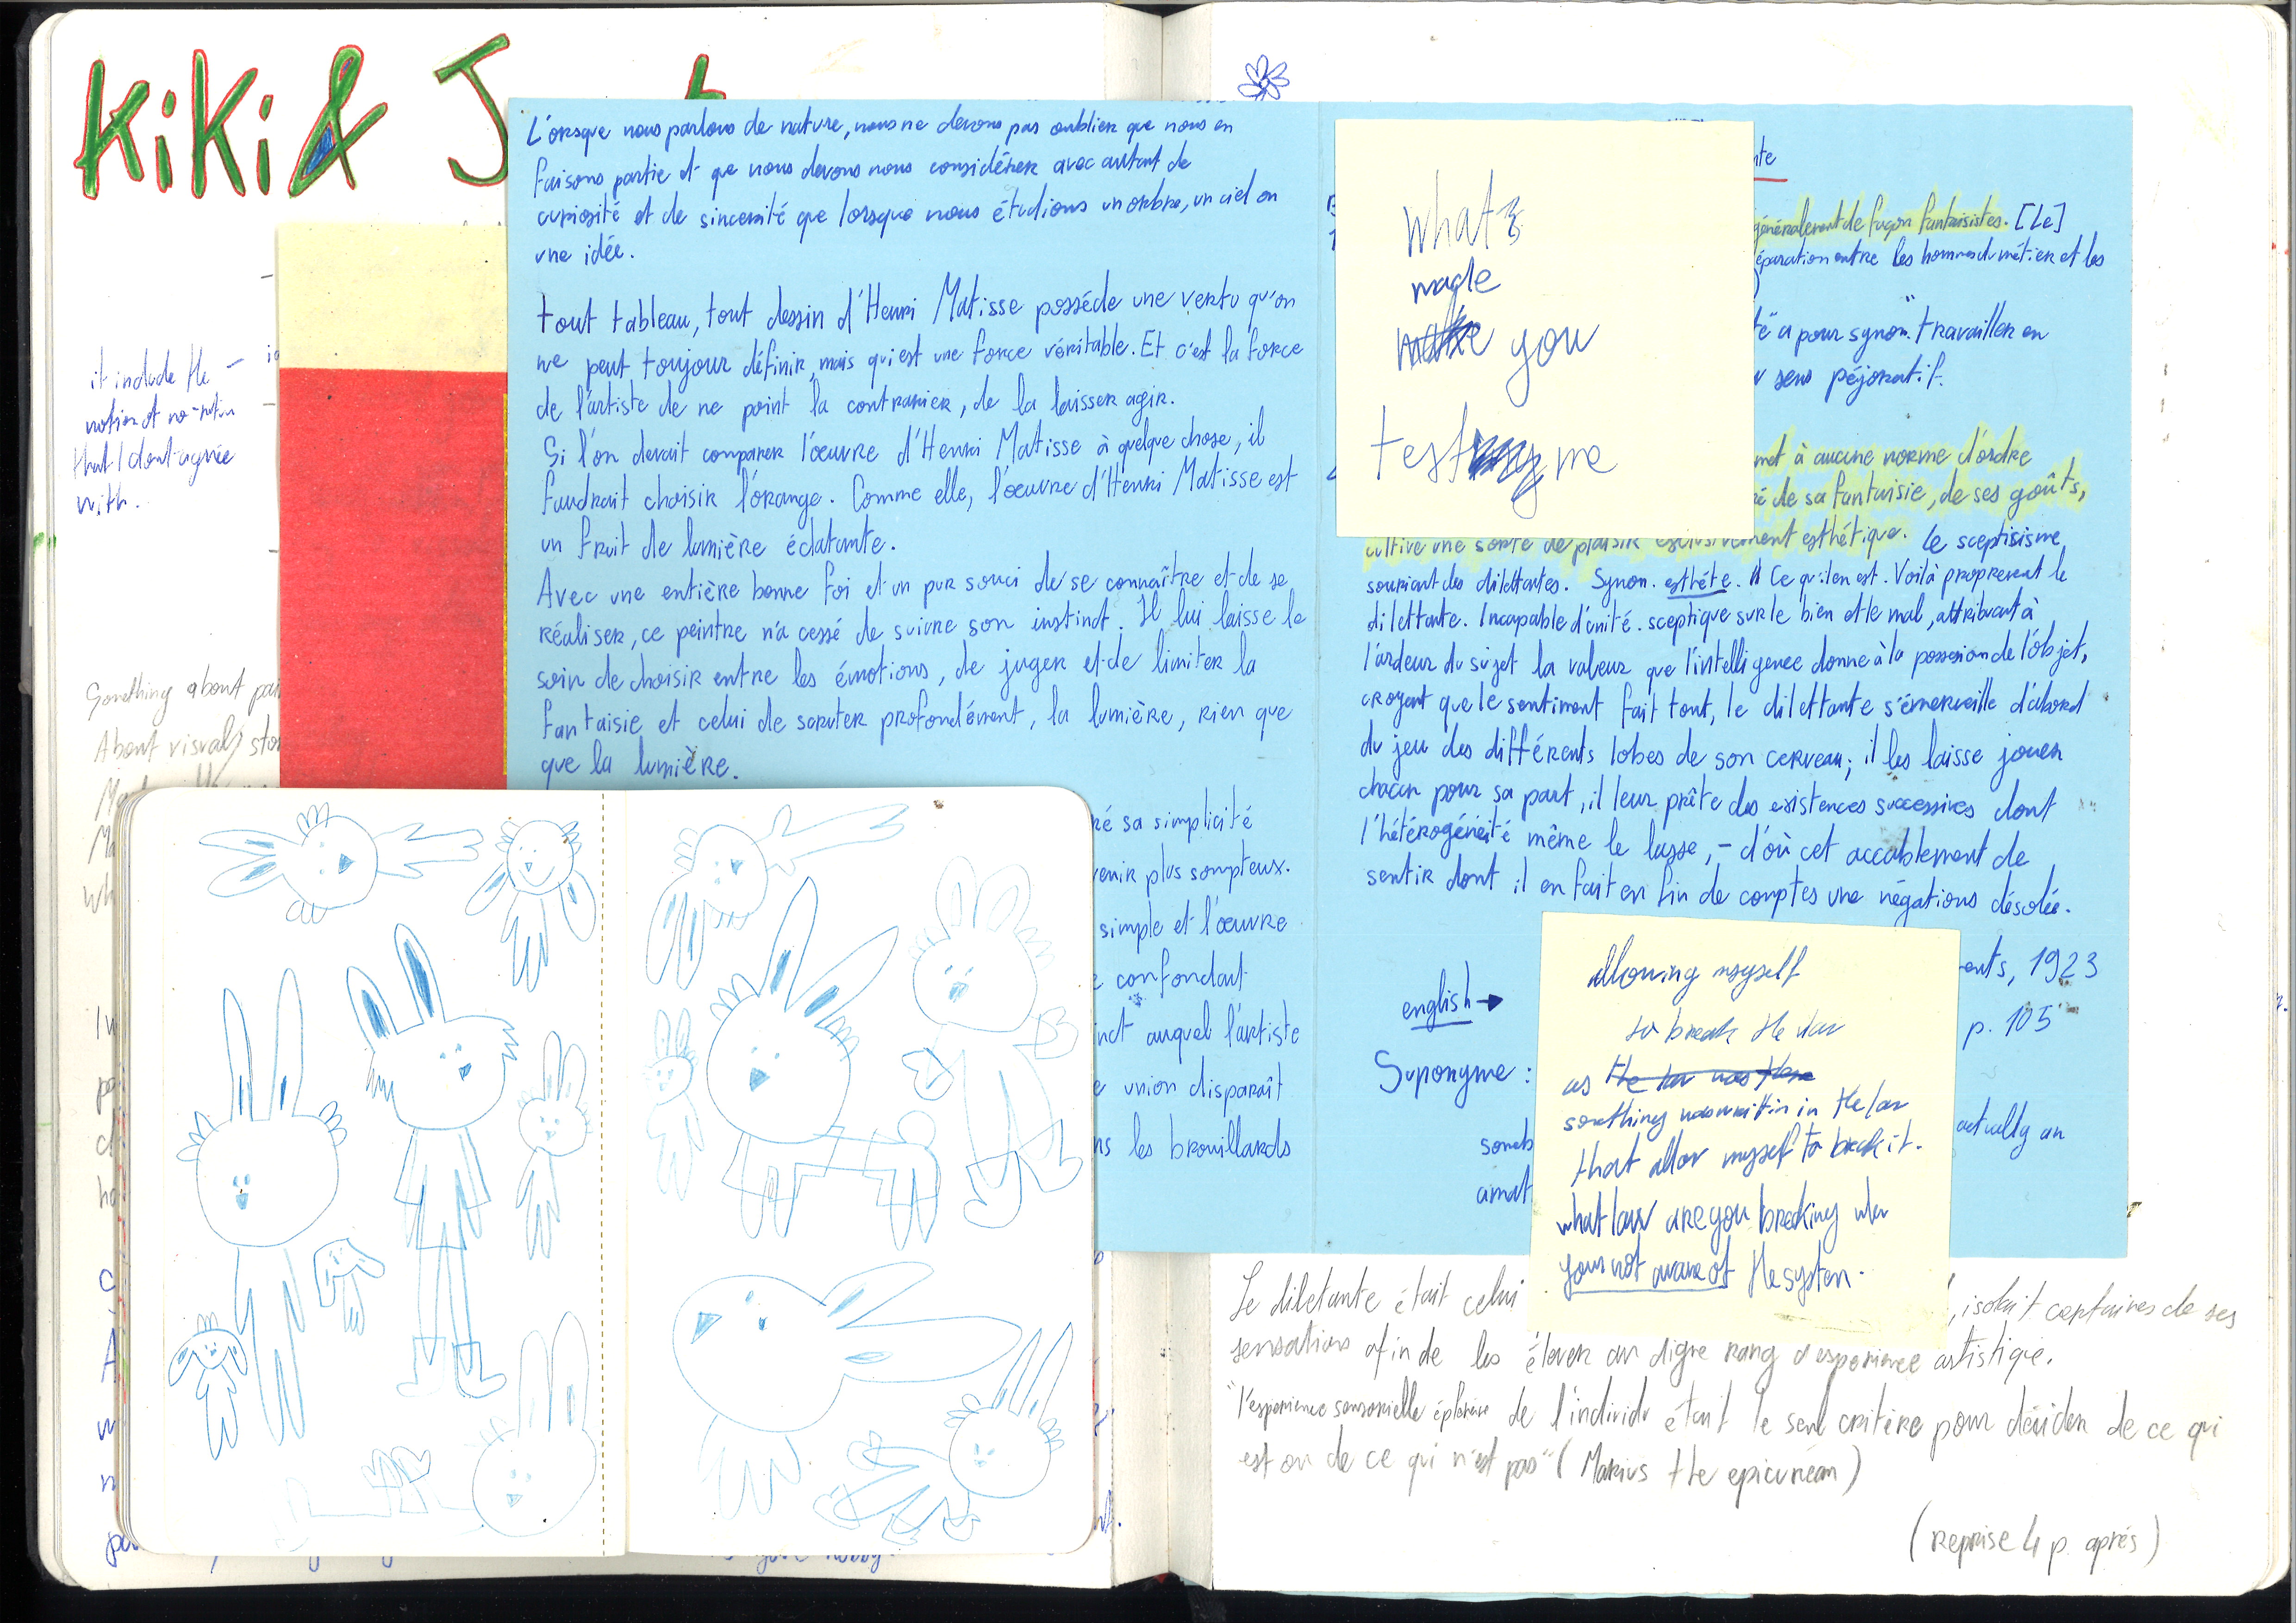 KiKi & J
it include the –
notion of no-
that I dont agrée
with.
Something about
About visual
L'orsque nous parlons de nature, nous ne devons pas oublier que nous en
faisons partie et que nous devons nous considérer avec autant de
curiosité et de sincerité que lorsque nous étudions un arbre, un ciel ou
une idée.
tout tableau, tout dessin d'Henri Matisse posséde une vertu qu'on
ne peut toujour définir, mais qui est une force véritable. Et c'est la force
de l'artiste de ne point la contrarier, de la laisser agir.
Si l'on devait comparer l'œuvre d'Henri Matisse à quelque chose, il
faudrait choisir l'orange. Comme elle, l'œuvre d'Henri Matisse est
un fruit de lumière éclatante.
Avec une entière bonne foi et un pur souci de se connaître et de se
réaliser, ce peintre n'a cessé de suivre son instinct. Il lui laisse le
soin de choisir entre les émotions, de juger et de limiter la
fantaisie et celui de scruter profondément, la lumière, rien que
que la lumière.
sa simplicité
plus sompteux.
simple et l'œuvre
confondait
auquel l'artiste
union disparaît
les brouillards
what
made
you
test me
généralement de façon fantaisistes. [Le]
entre les hommes du métier et les
a pour synon." travailler en
sens péjoratif.
à aucune norme d'ordre
de sa fantaisie, de ses goûts,
cultive une sorte de plaisir esclusivement esthétique. Le sceptisisme
souriant des dilettantes. Synon. esthéte. Ce qu'il en est. Voilà proprement le
dilettante. Incapable d'unité. sceptique sur le bien et le mal, attribuant à
l'ardeur du sujet la valeur que l'intelligence donne à la possesion de l'objet,
croyant que le sentiment fait tout, le dilettante s'émerveille d'abord
du jeu des différents lobes de son cerveau; il les laisse jouer
chacun pour sa part, il leur prête des existences successives dont
l'hétérogénéité même le lasse, – d'où cet accablement de
sentir dont il en fait en fin de comptes une négations désolée.
1923
english →
p. 105
Synonyme :
actually an
allowing myself
to break the law
as the law was
something was writtin in the law
that allow myself to break it.
what law are you breaking when
your not aware of the system.
Le diletante était celui
, isolait certaines de ses
sensations afin de les élever au digne rang d'esperience artistique.
"l'esperience sensorielle de l'individu était le seul critère pour décider de ce qui
est ou de ce qui n'est pas" (Marius the epicurean)
(reprise 4 p. après)